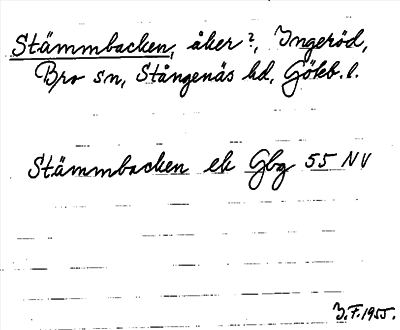 Stämmbacken, åker?, Ingeröd,
Bro sn, Stångenäs hd, Göteb. l.
Stämmbacken ek Gbg 55 NV
I.F. 1955.